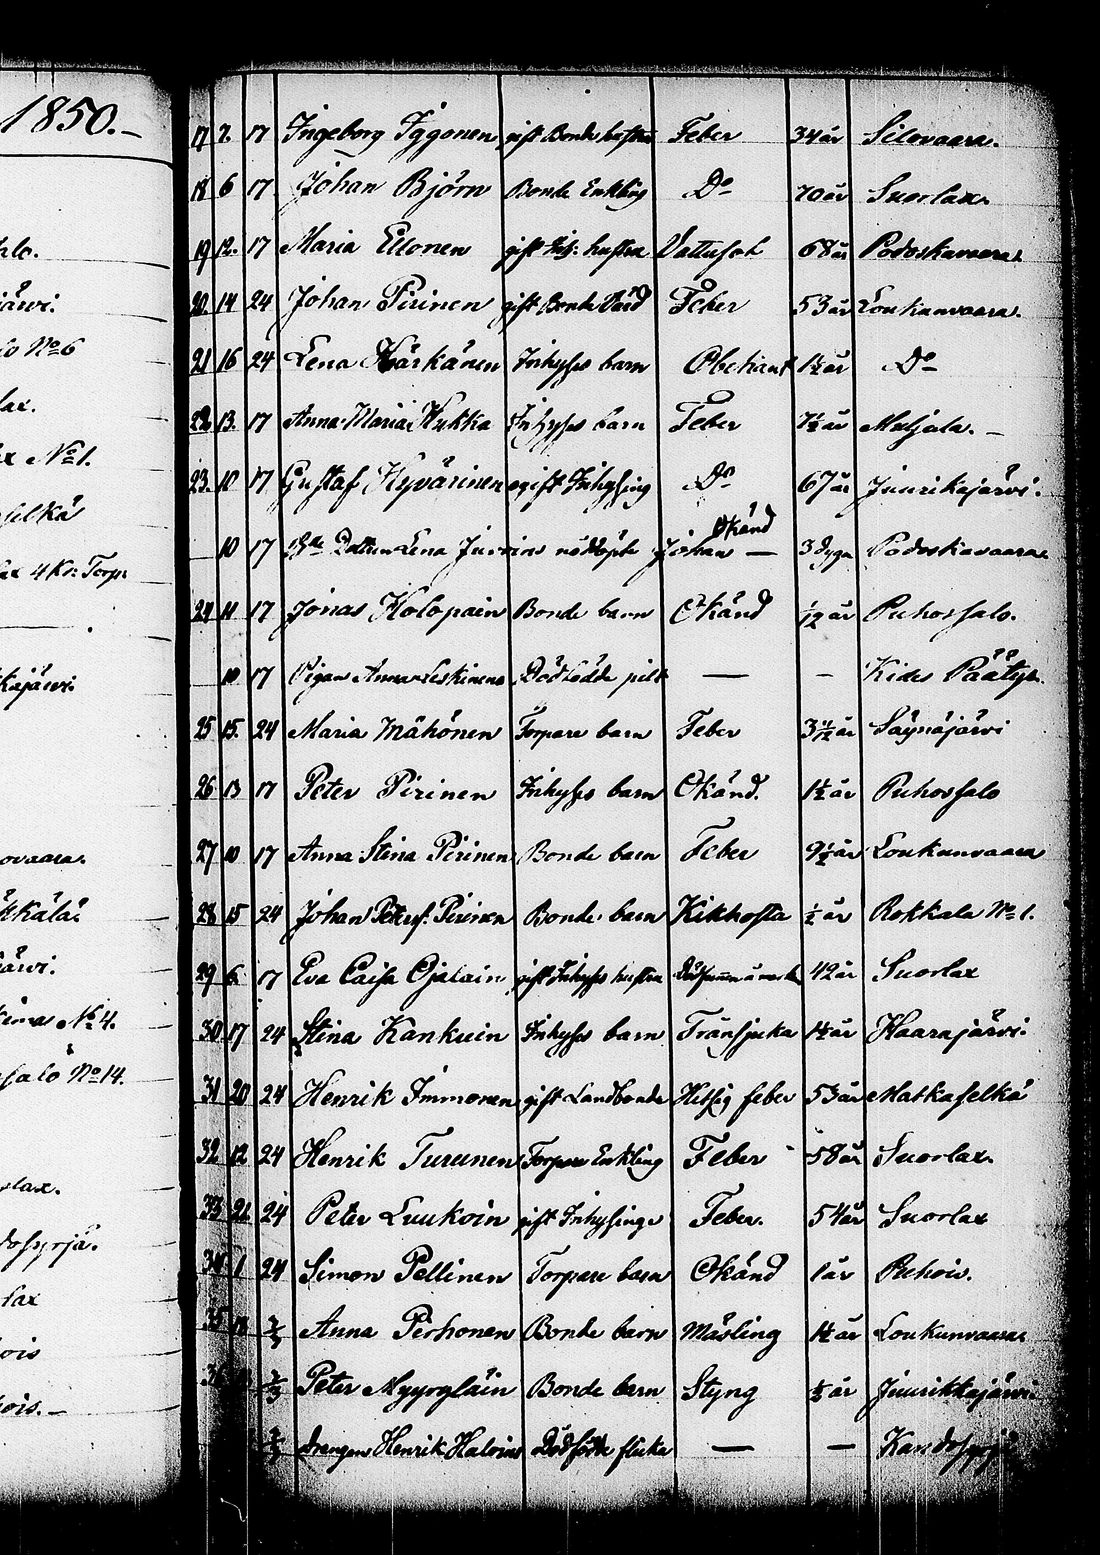 1850.-
alo.
järvi.
lo No 6
lax.
x No 1.
selkä
ax 4 Kr: Torp.
kajärvi
ovaara.
kkälä.
järvi.
No 4.
salo No 14.
lax.
dosyrjä.
lax
ois
ois.-
17 7. 17 Ingeborg Iggonen gift Bonde hustru Feber 34 år Silovaara.
18 6 17. Johan Björn Bonde Enkling Do 70 år Suorlax.
19 12. 17 Maria Ellonen gift Inh. hustru Vattusot 68 år Podoskavaara.
20. 14 24 Johan Pirinen gift Bonde Värd Feber 53 år Loukunvaara.
21 16 24 Lena Härkänen Inhyses barn Obekant 1½ år Do
22. 13. 17 Anna Maria Kukka Inhyses barn Feber 7½ år Muljula. -
23. 10 17 Gustaf Hyvärinen ogift Inhysing Do 67 år Juurikajärvi.
10 17 Lena nödöpte Johan Okänd — 3 dygn Podoskavaara.
24 11 17 Jonas Holopain Bonde barn Okänd 1/12 år Puhossalo.
10. 17 Pigans Anna Leskinens Dödfödde pilt — – Kides Päätye.
25 15. 24 Maria Mähönen Torpare barn Feber 3 år Säynäjärvi
26 13 17 Peter Pirinen Inhyses barn Okänd. 1½ år Puhossalo
27 10 17 Anna Stina Pirinen Bonde barn Feber 9½ år Loukunvaara
28 15 24 Johan Petersf. Pirinen Bonde barn Kikhosta ½ år Rokkala No 1.
29 6. 17 Eva Caisa Ojalain gift Inhyses hustru 42 år Suorlax
30 17 24 Stina Kankuin Inhyses barn Trånsjuka år Haarajärvi.
31 20 24 Henrik Immonen gift Landbonde Hetsig feber 53 år Matkaselkä
32 12 24 Henrik Turunen Torpare Enkling Feber 58 år Suorlax.
33 21. 24 Peter Luukoin gift Inhysinge Feber. 54 år Suorlax
34 1 24 Simon Pellinen Torpare barn Okänd 1 år Puhois.
35 18 Anna Perhonen Bonde barn Mäsling år Loukunvaara
36 Peter Myyryläin Bonde barn Styng år Juurikkajärvi
drengens Henrik Halvins Dödfödde flicka — —